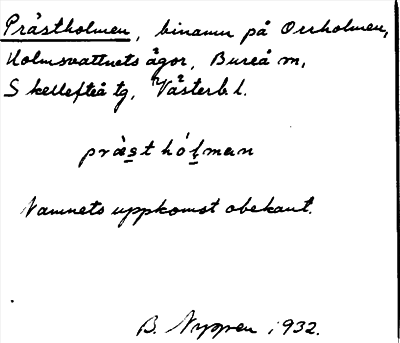 Prästholmen, binamn på Orrholmen,
Holmsvattnets ägor, Bureå sn,
Skellefteå tg, Västerb. l.
prä̀st hólman
Namnets uppkomst obekant.
B. Nyppen 1932.